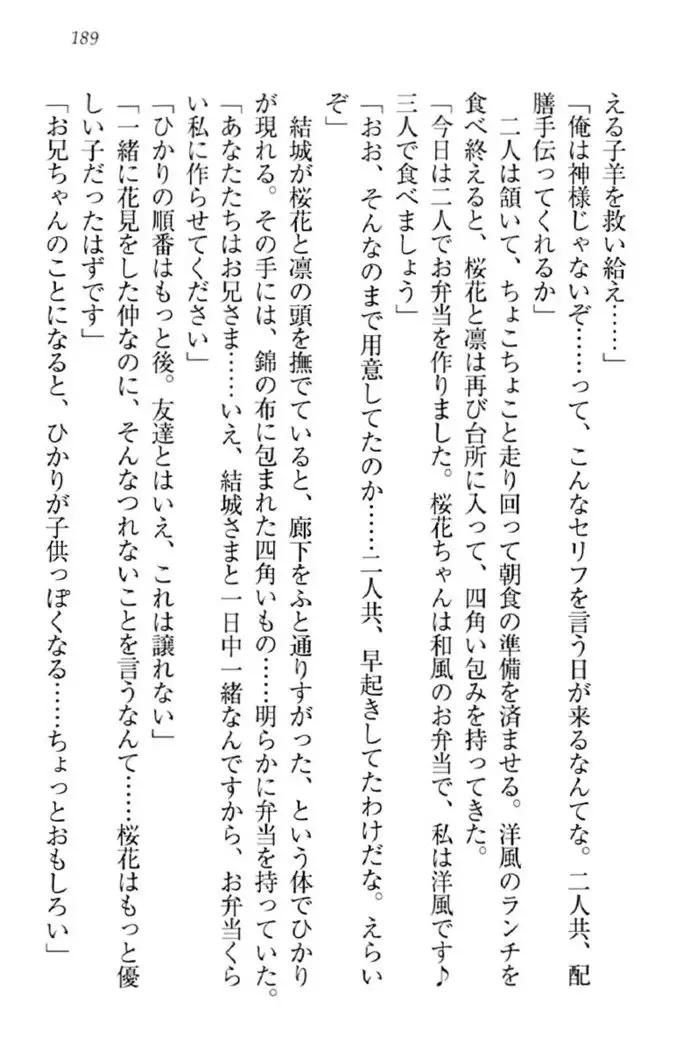 189
える子羊を救い給え……」
「俺は神様じゃないぞ……って、こんなセリフを言う日が来るなんてな。二人共、配
膳手伝ってくれるか」
　二人は頷いて、ちょこちょこと走り回って朝食の準備を済ませる。洋風のランチを
食べ終えると、桜花と凛は再び台所に入って、四角い包みを持ってきた。
「今日は二人でお弁当を作りました。桜花ちゃんは和風のお弁当で、私は洋風です♪
三人で食べましょう」
「おお、そんなのまで用意してたのか……二人共、早起きしてたわけだな。えらい
ぞ」
　結城が桜花と凛の頭を撫でていると、廊下をふと通りすがった、という体でひかり
が現れる。その手には、錦の布に包まれた四角いもの……明らかに弁当を持っていた。
「あなたたちはお兄さま……いえ、結城さまと一日中一緒なんですから、お弁当くら
い私に作らせてください」
「ひかりの順番はもっと後。友達とはいえ、これは譲れない」
「一緒に花見をした仲なのに、そんなつれないことを言うなんて……桜花はもっと優
しい子だったはずです」
「お兄ちゃんのことになると、ひかりが子供っぽくなる……ちょっとおもしろい」